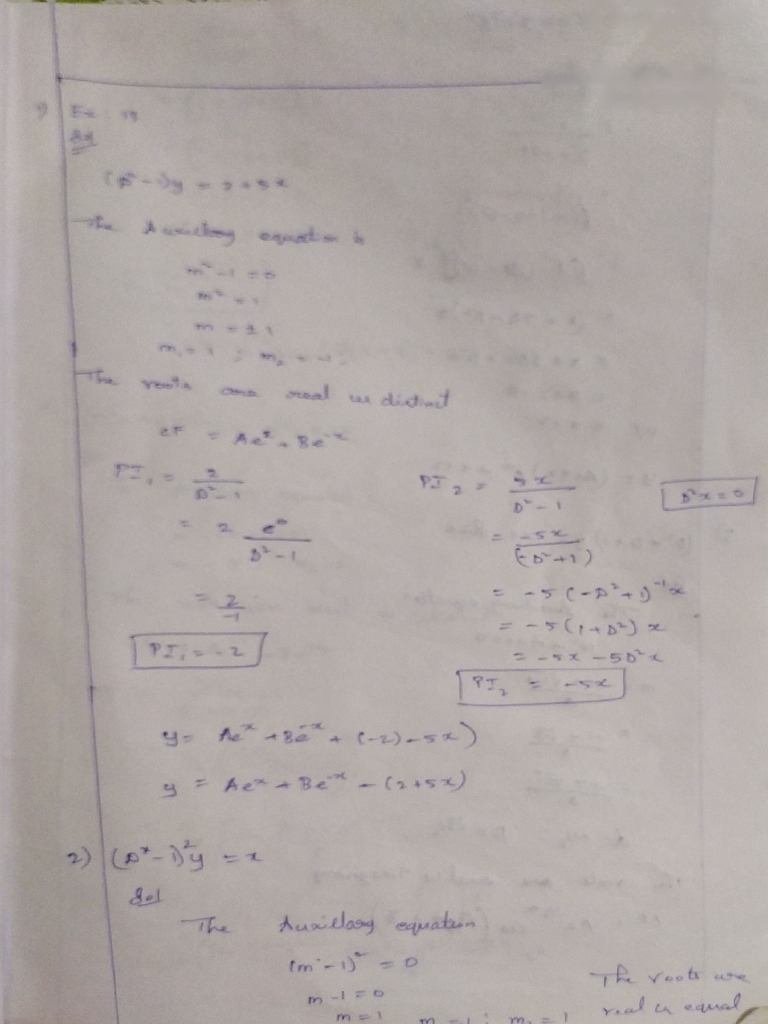 Sol
(D² - 1)y = 2 + 5x
The Auxillary equation is
m² - 1 = 0
m² = 1
m = ±1
m₁ = 1 ; m₂ = -1
The roots are real & distinct
CF = Ae^x + Be^-x
PI₁ = 2 / (D² - 1)
= 2 e⁰ / (D² - 1)
= 2 / -1
PI₁ = -2
PI₂ = 5x / (D² - 1)
D²x = 0
= -5x / (-D² + 1)
= -5 (-D² + 1)⁻¹ x
= -5 (1 + D²) x
= -5x - 5D²x
PI₂ = -5x
y = Ae^x + Be^-x + (-2) - 5x)
y = Ae^x + Be^-x - (2 + 5x)
2) - 1)² y = x
Sol
The Auxillary equation
(m - 1)² = 0
m - 1 = 0
m = 1
m₂ = 1
The roots are
real & equal